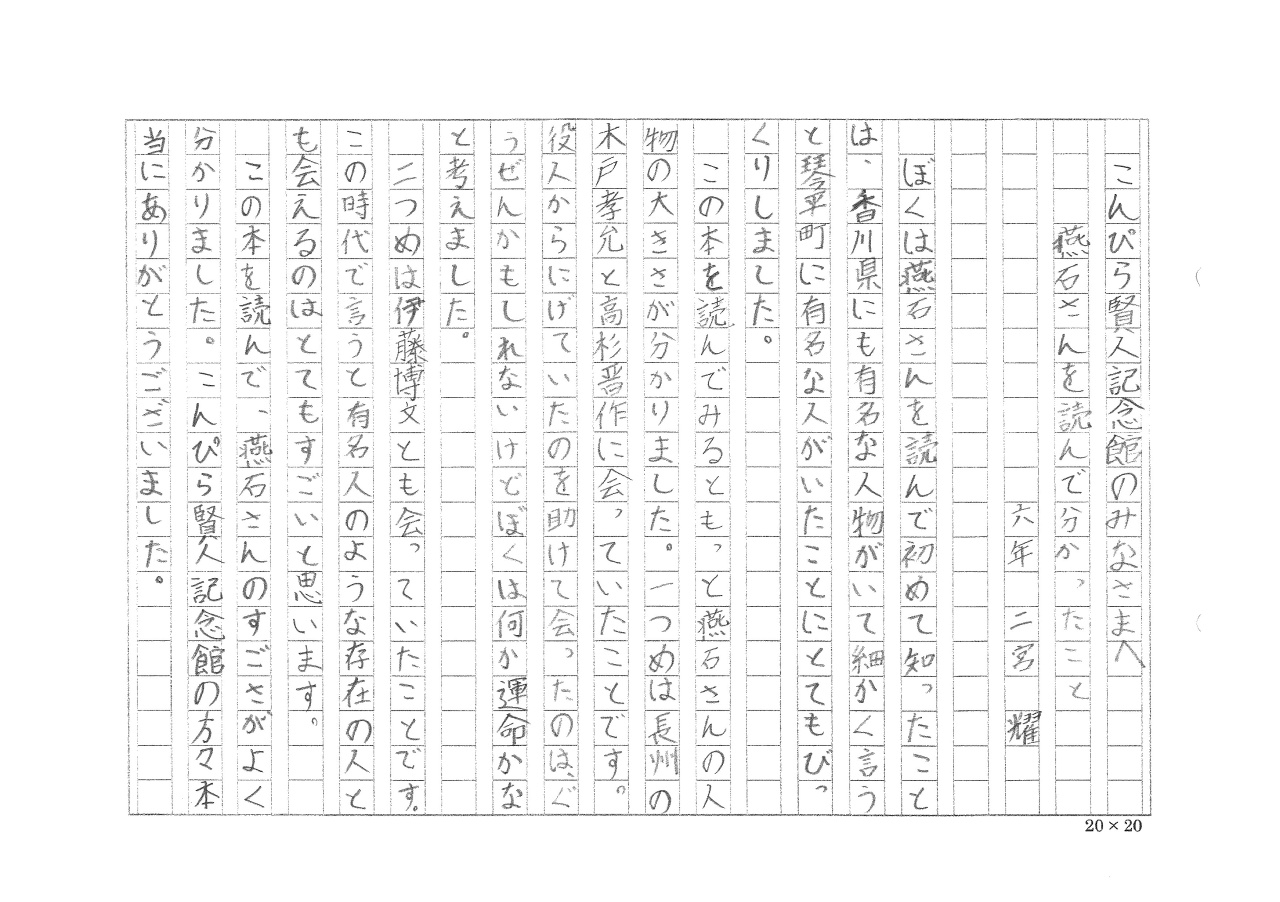 こんぴら賢人記念館のみなさまへ
燕石さんを読んで分かったこと
六年 二宮 耀
ぼくは燕石さんを読んで初めて知ったこと
は、香川県にも有名な人物がいて細かく言う
と琴平町に有名な人がいたことにとてもびっ
くりしました。
この本を読んでみるともっと燕石さんの人
物の大きさが分かりました。一つめは長州の
木戸孝允と高杉晋作に会っていたことです。
役人からにげていたのを助けて会ったのは、ぐ
うぜんかもしれないけどぼくは何か運命かな
と考えました。
二つめは伊藤博文とも会っていたことです。
この時代で言うと有名人のような存在の人と
も会えるのはとてもすごいと思います。
この本を読んで、燕石さんのすごさがよく
分かりました。こんぴら賢人記念館の方々本
当にありがとうございました。
20×20